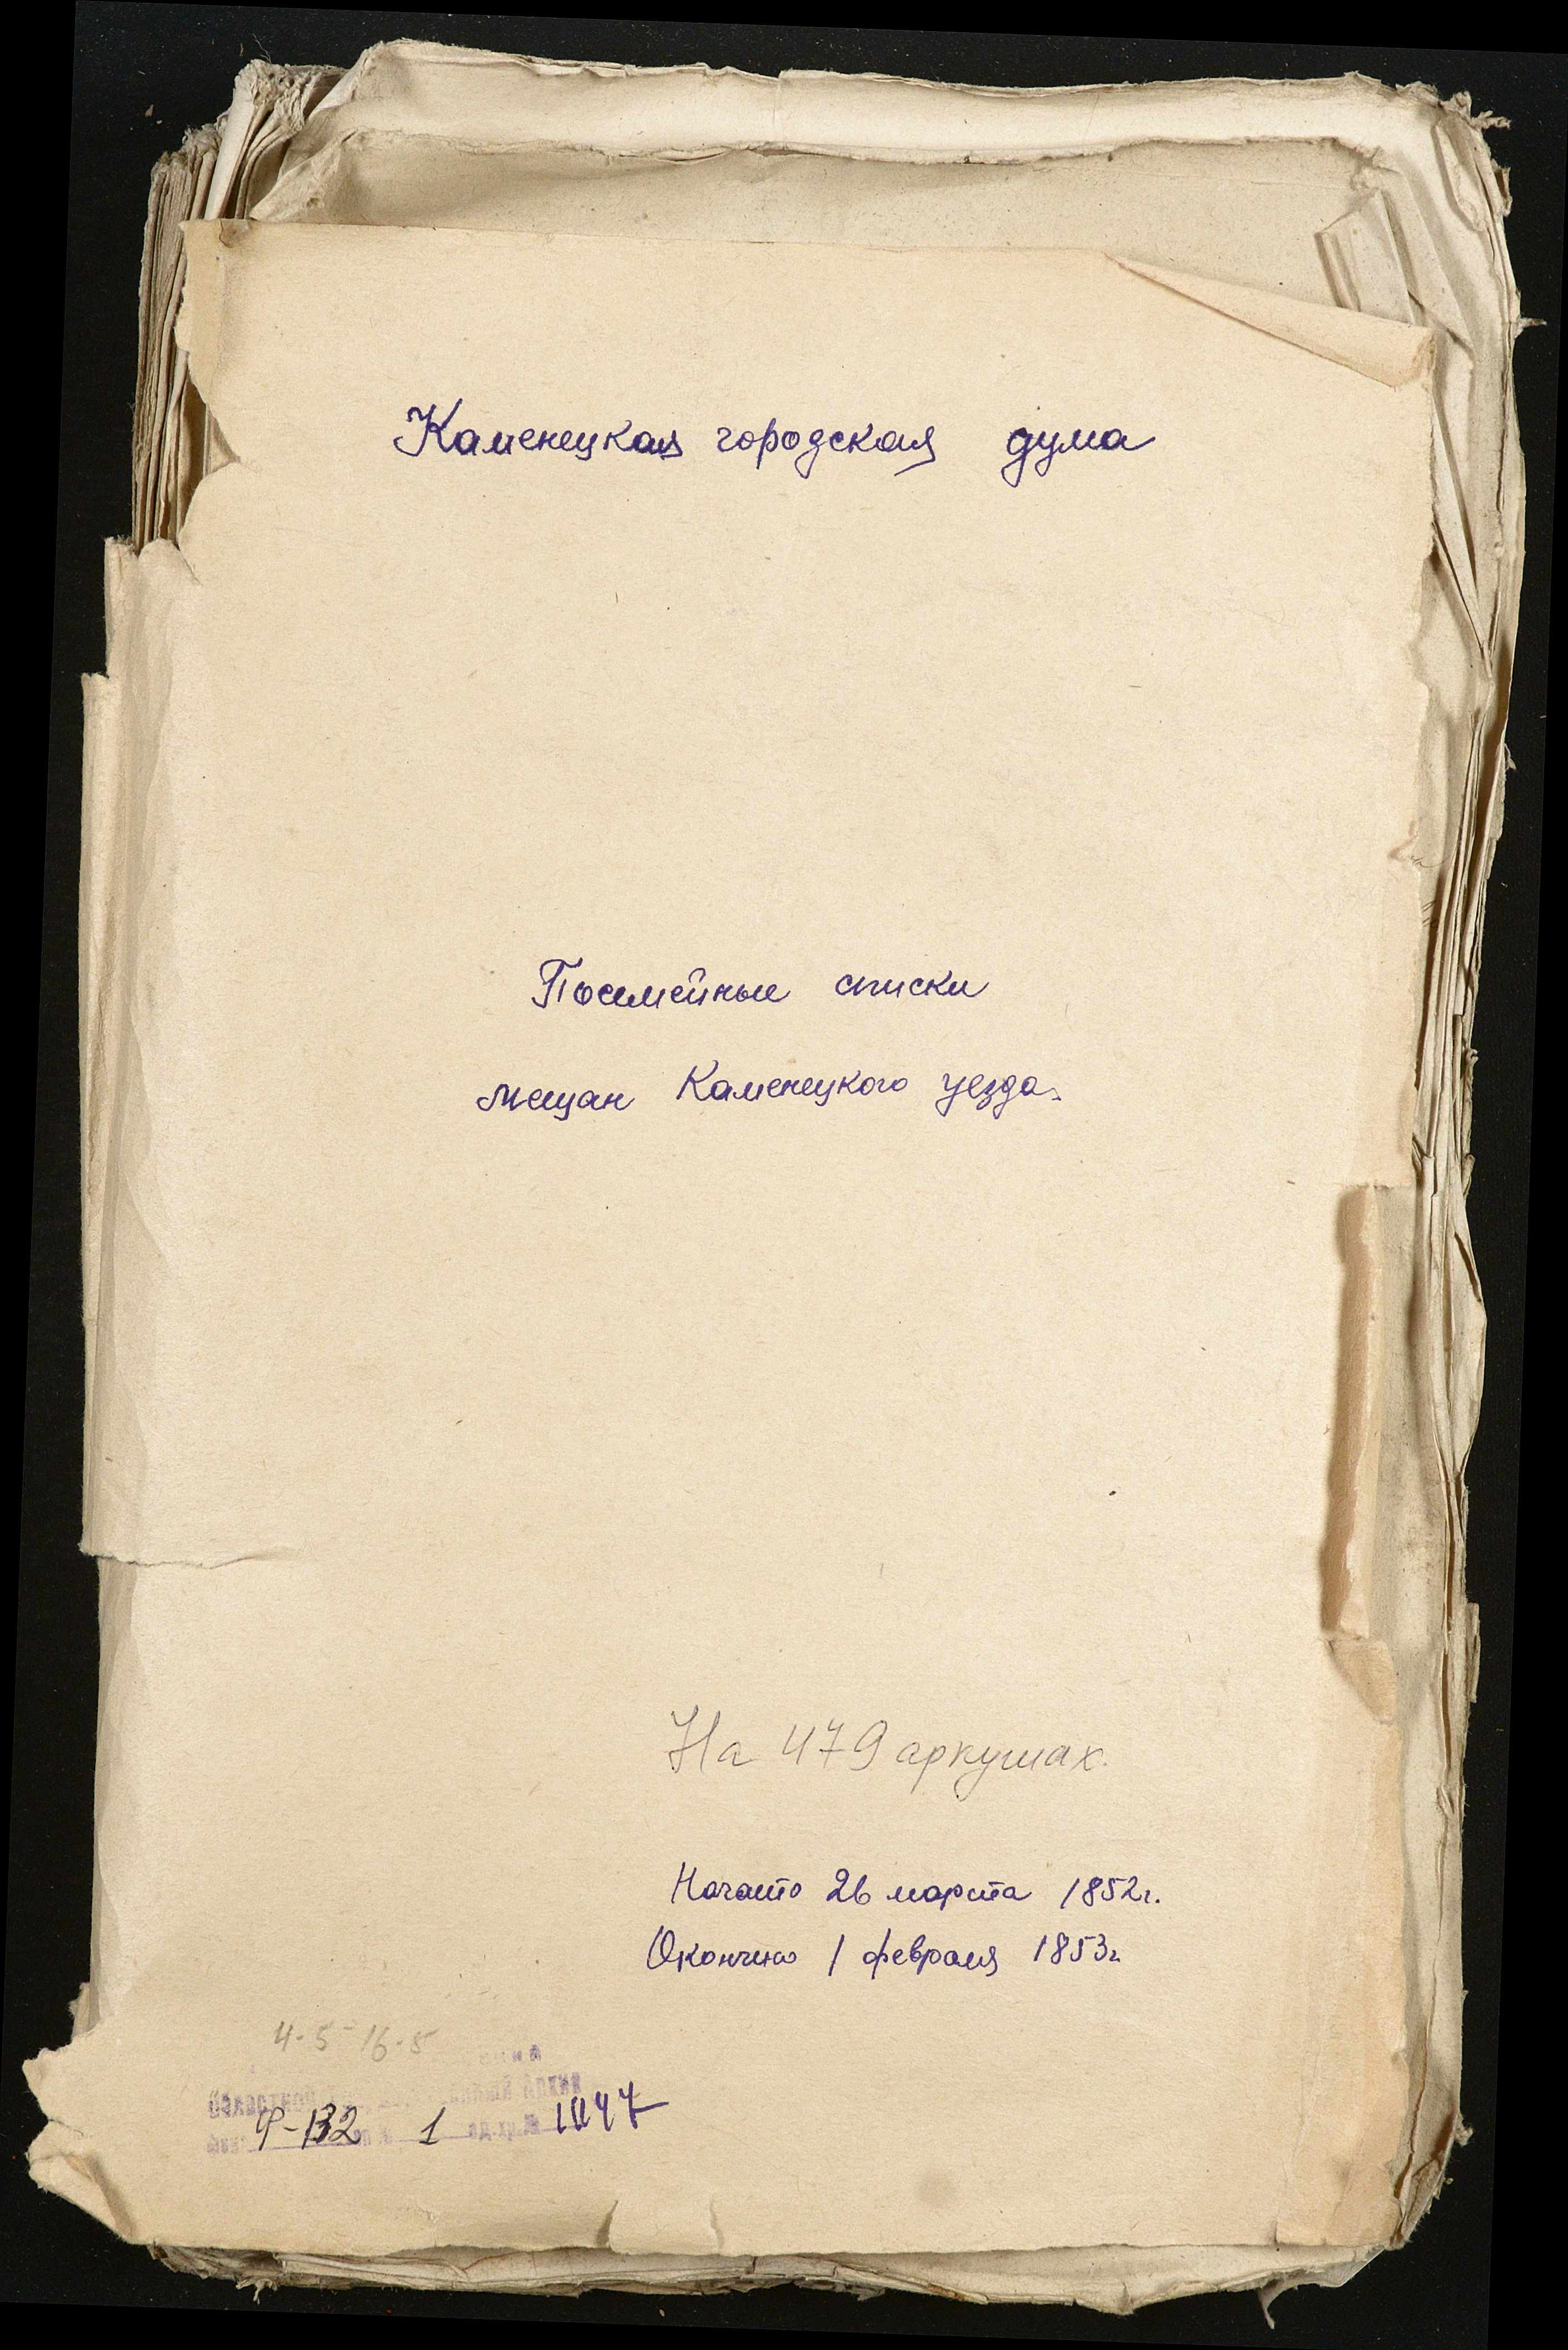 Каменецкая городская дума
Посемейные списки
мещан Каменецкого уезда.
На 479 аркушах.
Начато 26 марта 1852г.
Окончено 1 февраля 1853г.
4-5-16-5
Ф-132 1 1047